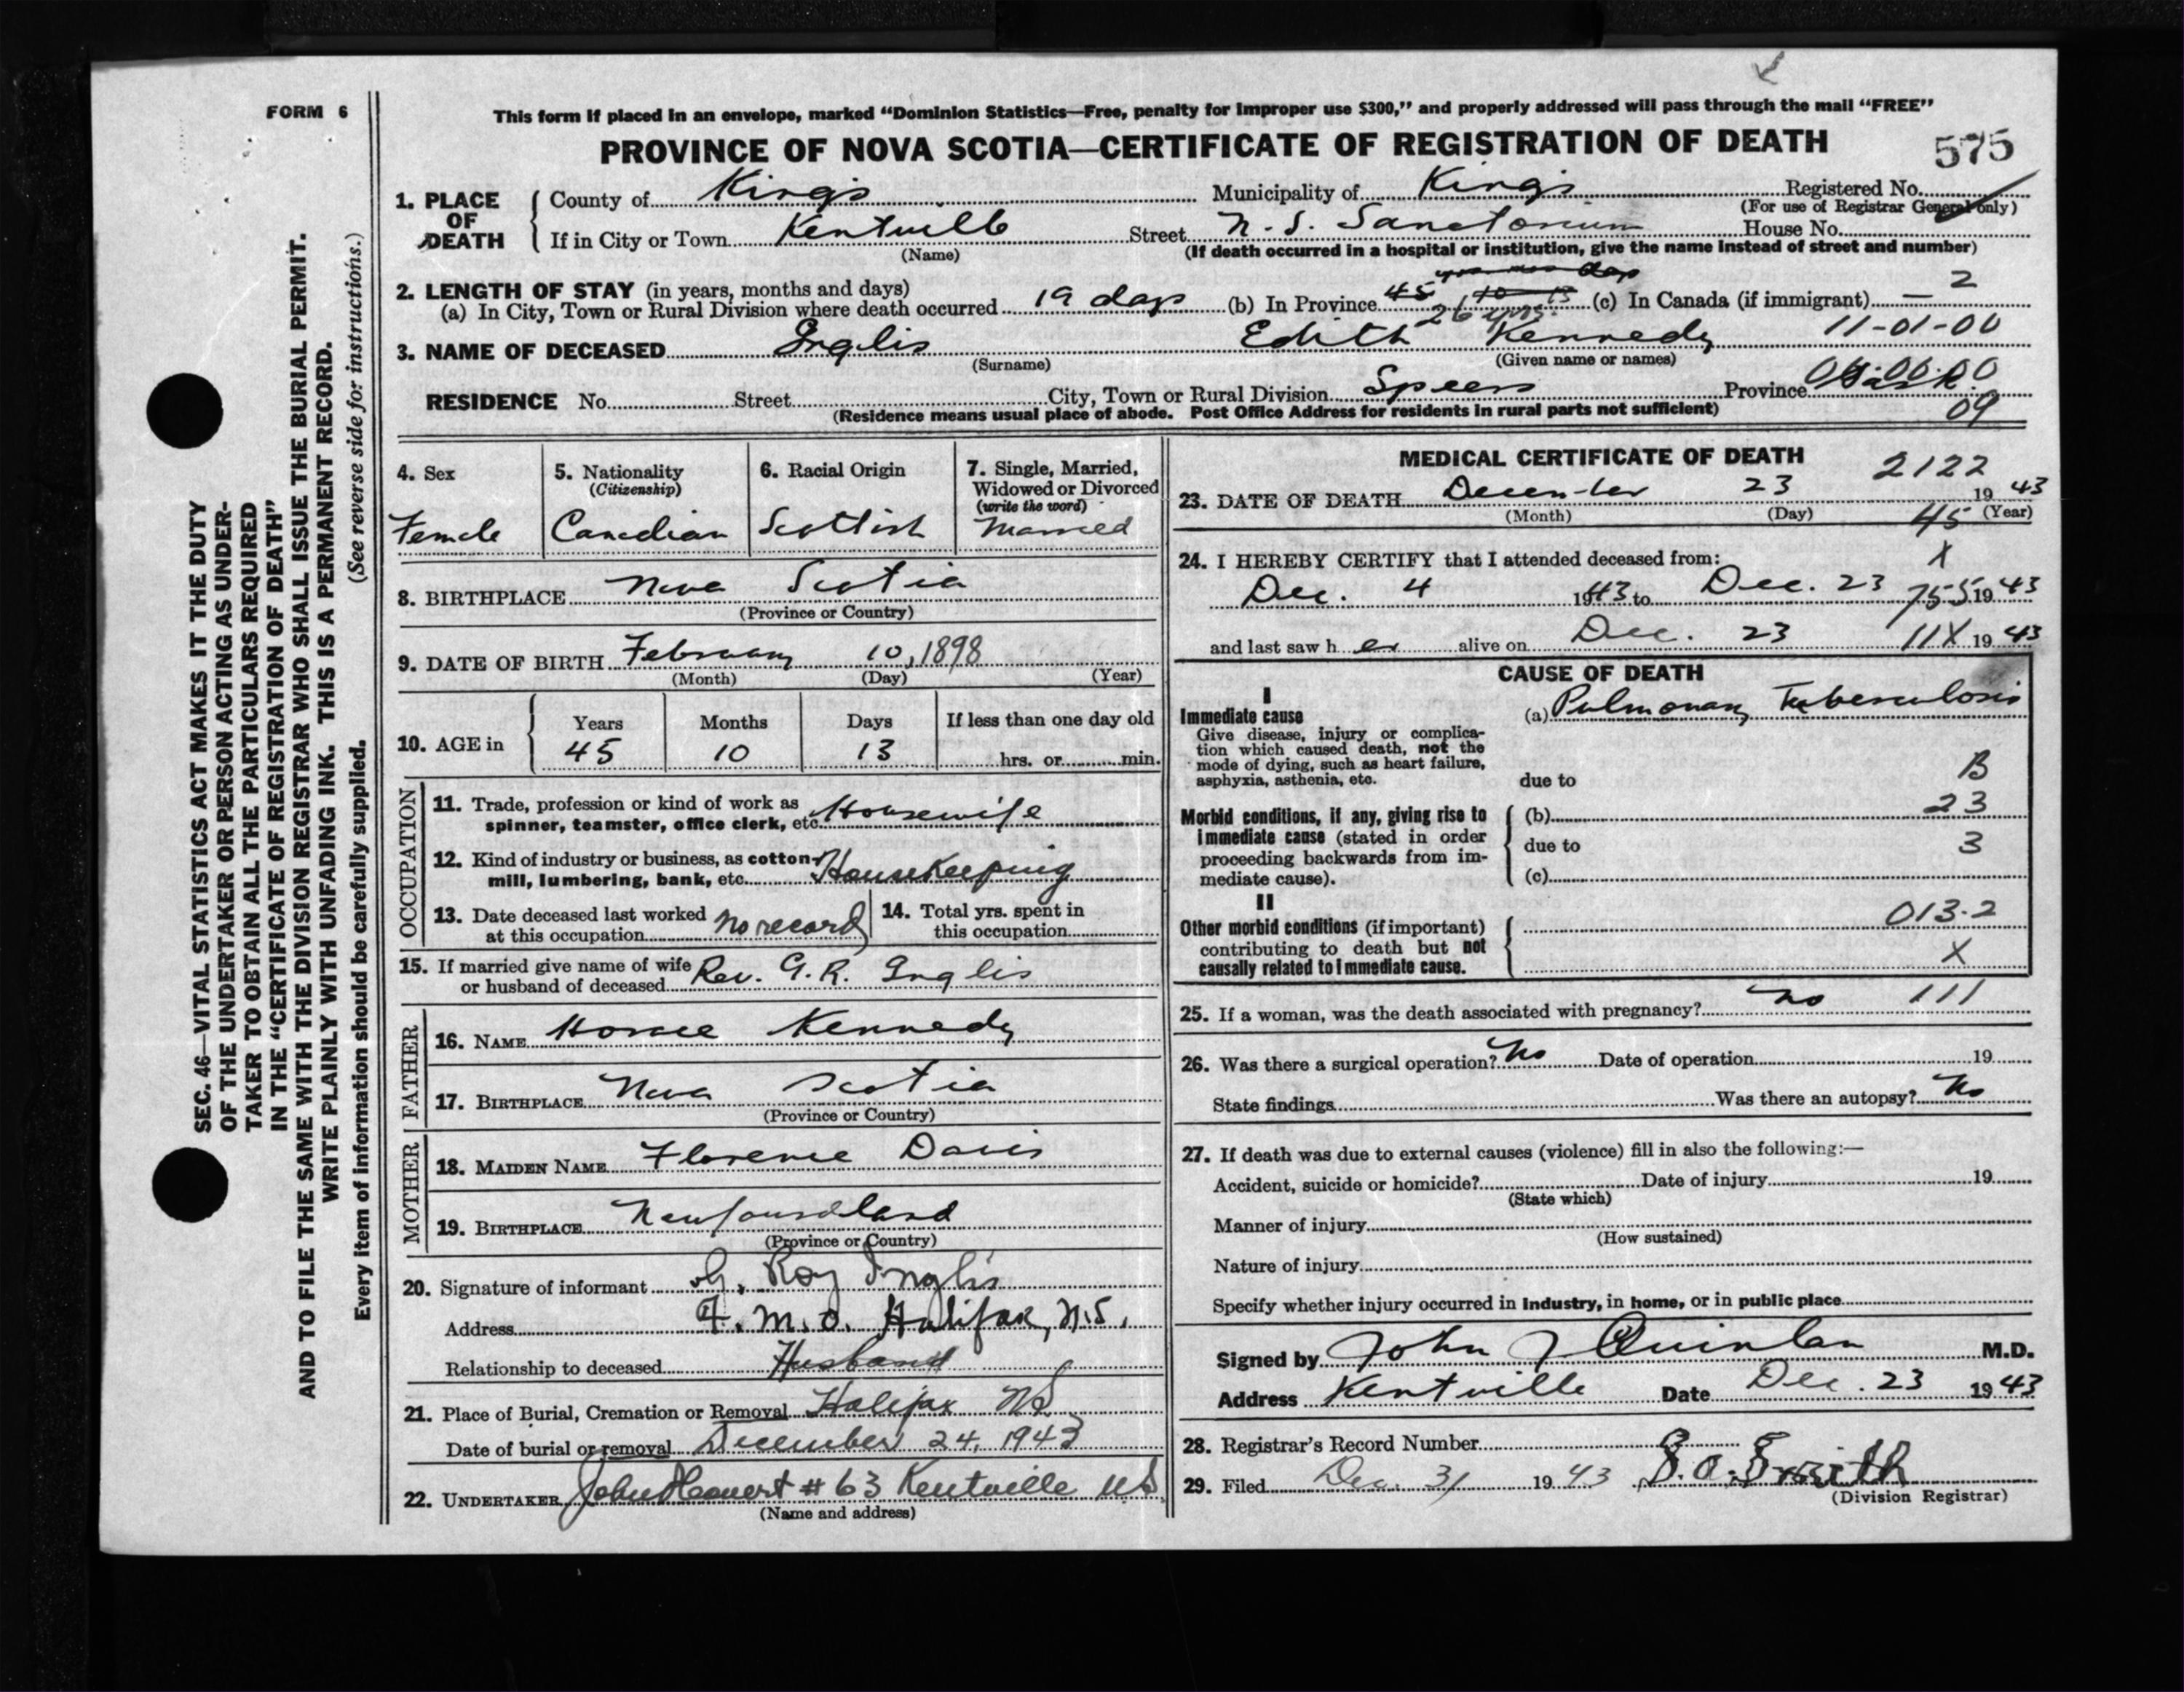 FORM 6
This form if placed in an envelope, marked “Dominion Statistics—Free, penalty for improper use $300,” and properly addressed will pass through the mail “FREE”
PROVINCE OF NOVA SCOTIA—CERTIFICATE OF REGISTRATION OF DEATH
575
1. PLACE OF DEATH
County of Kings Municipality of Kings Registered No.
(For use of Registrar General only)
If in City or Town Kentville Street N. S. Sanatorium House No.
(Name) (If death occurred in a hospital or institution, give the name instead of street and number)
2. LENGTH OF STAY (in years, months and days)
yrs mos days
(a) In City, Town or Rural Division where death occurred 19 days (b) In Province 45 10 13 (c) In Canada (if immigrant) — 2
26 yrs.
11-01-00
3. NAME OF DECEASED Inglis Edith Kennedy
(Surname) (Given name or names)
RESIDENCE No. Street City, Town or Rural Division Speers Province Sask.
(Residence means usual place of abode. Post Office Address for residents in rural parts not sufficient)
09
4. Sex
Female
5. Nationality
(Citizenship)
Canadian
6. Racial Origin
Scottish
7. Single, Married, Widowed or Divorced
(write the word)
Married
8. BIRTHPLACE Nova Scotia
(Province or Country)
9. DATE OF BIRTH February 10, 1898
(Month) (Day) (Year)
10. AGE in
Years Months Days If less than one day old
45 10 13 hrs. or min.
OCCUPATION
11. Trade, profession or kind of work as
spinner, teamster, office clerk, etc. Housewife
12. Kind of industry or business, as cotton-
mill, lumbering, bank, etc. Housekeeping
13. Date deceased last worked
at this occupation no record
14. Total yrs. spent in
this occupation
15. If married give name of wife
or husband of deceased Rev. G. R. Inglis
FATHER
16. NAME Horace Kennedy
17. BIRTHPLACE Nova Scotia
(Province or Country)
MOTHER
18. MAIDEN NAME Florence Davis
19. BIRTHPLACE Newfoundland
(Province or Country)
20. Signature of informant G. Roy Inglis
Address F. M. O. Halifax, N.S.
Relationship to deceased Husband
21. Place of Burial, Cremation or Removal Halifax NS
Date of burial or removal December 24, 1943
22. UNDERTAKER # 63 Kentville NS
(Name and address)
MEDICAL CERTIFICATE OF DEATH
2122
23. DATE OF DEATH December 23 19 43
(Month) (Day) (Year)
45
24. I HEREBY CERTIFY that I attended deceased from:
X
Dec. 4 1943 to Dec. 23 19 43
755
and last saw her alive on Dec. 23 19 43
11X
CAUSE OF DEATH
I
Immediate cause
Give disease, injury or complica-
tion which caused death, not the
mode of dying, such as heart failure,
asphyxia, asthenia, etc.
(a) Pulmonary Tuberculosis
due to
B
Morbid conditions, if any, giving rise to
immediate cause (stated in order
proceeding backwards from im-
mediate cause).
(b) 23
due to 3
(c)
II
Other morbid conditions (if important)
contributing to death but not
causally related to immediate cause.
013.2
X
25. If a woman, was the death associated with pregnancy? no 111
26. Was there a surgical operation? No Date of operation 19
State findings Was there an autopsy? No
27. If death was due to external causes (violence) fill in also the following:—
Accident, suicide or homicide? Date of injury 19
(State which)
Manner of injury
(How sustained)
Nature of injury
Specify whether injury occurred in industry, in home, or in public place
Signed by John J Quinlan M.D.
Address Kentville Date Dec. 23 1943
28. Registrar's Record Number
29. Filed Dec. 31 19 43 Smith
(Division Registrar)
SEC. 46—VITAL STATISTICS ACT MAKES IT THE DUTY
OF THE UNDERTAKER OR PERSON ACTING AS UNDER-
TAKER TO OBTAIN ALL THE PARTICULARS REQUIRED
IN THE “CERTIFICATE OF REGISTRATION OF DEATH”
AND TO FILE THE SAME WITH THE DIVISION REGISTRAR WHO SHALL ISSUE THE BURIAL PERMIT.
WRITE PLAINLY WITH UNFADING INK. THIS IS A PERMANENT RECORD.
Every item of information should be carefully supplied. (See reverse side for instructions.)